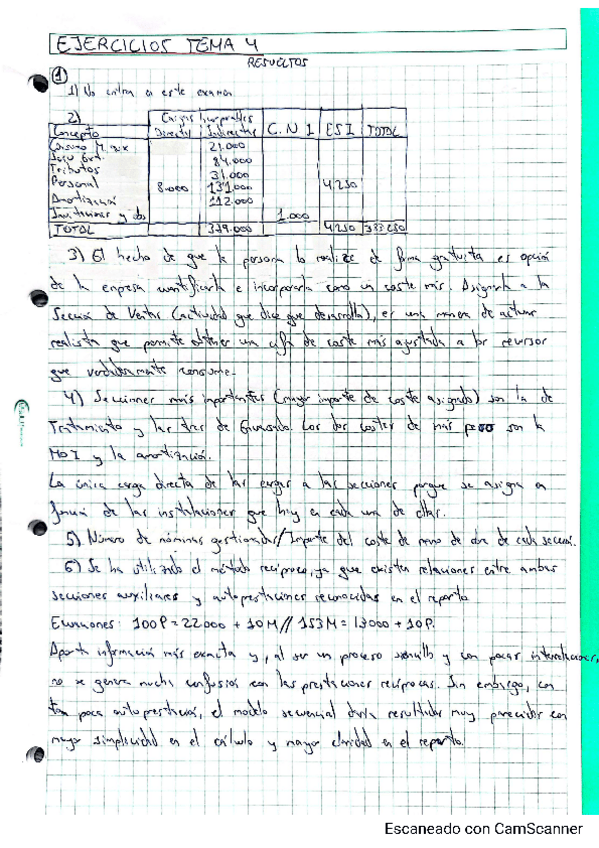 EJERCICIOS TEMA 4
RESUELTOS
①
1) No entra en este examen
2)
Concepto Cargas Incorporables C. N I ESI TOTAL
Directas Indirectas
Consumo M. aux 21.000
Serv. Ext. 84.000
Tributos 31.000
Personal 8.000 131.000 4.250
Amortización 112.000
1.000
TOTAL 379.000 4250
3) El hecho de que la persona lo realice de forma gratuita es opción
de la empresa cuantificarla e incorporarla como un coste más. Asignarla a la
Sección de Ventas (actividad que dice que desarrolla), es una manera de actuar
realista que permite obtener una cifra de coste más ajustada a los recursos
que verdaderamente consume.
4) Secciones más importantes (mayor importe de coste asignado) son la de
Tratamiento y las tres de Envasado. Los dos costes de más peso son la
MOI y la amortización.
La única carga directa de las cargas a las secciones porque se asigna en
función de las instalaciones que hay en cada una de ellas.
5) Número de nóminas gestionadas/Importe del coste de mano de obra de cada sección.
6) Se ha utilizado el método recíproco, ya que existen relaciones entre ambas
secciones auxiliares y autoprestaciones reconocidas en el reparto
Ecuaciones: 100P = 22000 + 10M // 153M = 13000 + 10P.
Aporta información más exacta y, al ser un proceso sencillo y con pocas interrelaciones,
no se genera mucha confusión con las prestaciones recíprocas. Sin embargo, con
tan poca autoprestación, el modelo secuencial daría resultados muy parecidos con
mayor simplicidad en el cálculo y mayor claridad en el reparto.
Escaneado con CamScanner